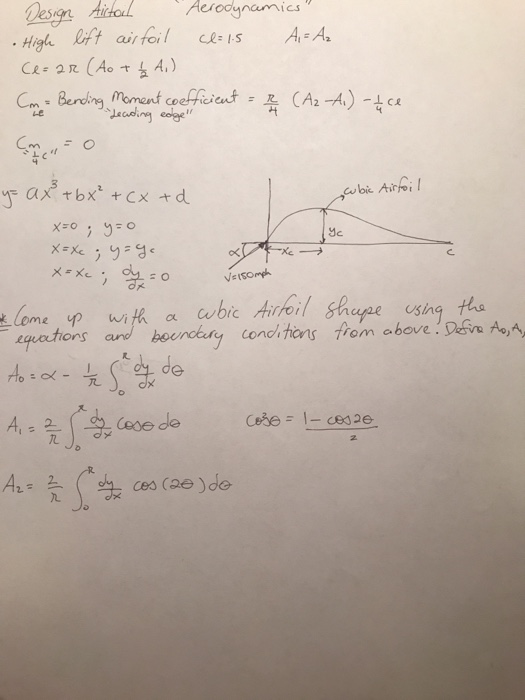 Design Airfoil "Aerodynamics"
• High lift airfoil cl = 1.5 A₁ = A₂
Cl = 2π (A₀ + ½ A₁)
Cm LE = Bending Moment coefficient = π/4 (A₂ - A₁) - ¼ cl
"Leading edge"
Cm "¼ c" = 0
y = ax³ + bx² + cx + d
cubic Airfoil
x=0 ; y=0
yc
x=xc ; y=yc
α xc c
x=xc ; dy/dx = 0
V=150mph
* Come up with a cubic Airfoil shape using the
equations and boundary conditions from above. Define A₀, A₁
A₀ = α - 1/π ∫₀^π dy/dx dθ
A₁ = 2/π ∫₀^π dy/dx cosθ dθ cos²θ = 1 - cos2θ / 2
A₂ = 2/π ∫₀^π dy/dx cos(2θ) dθ